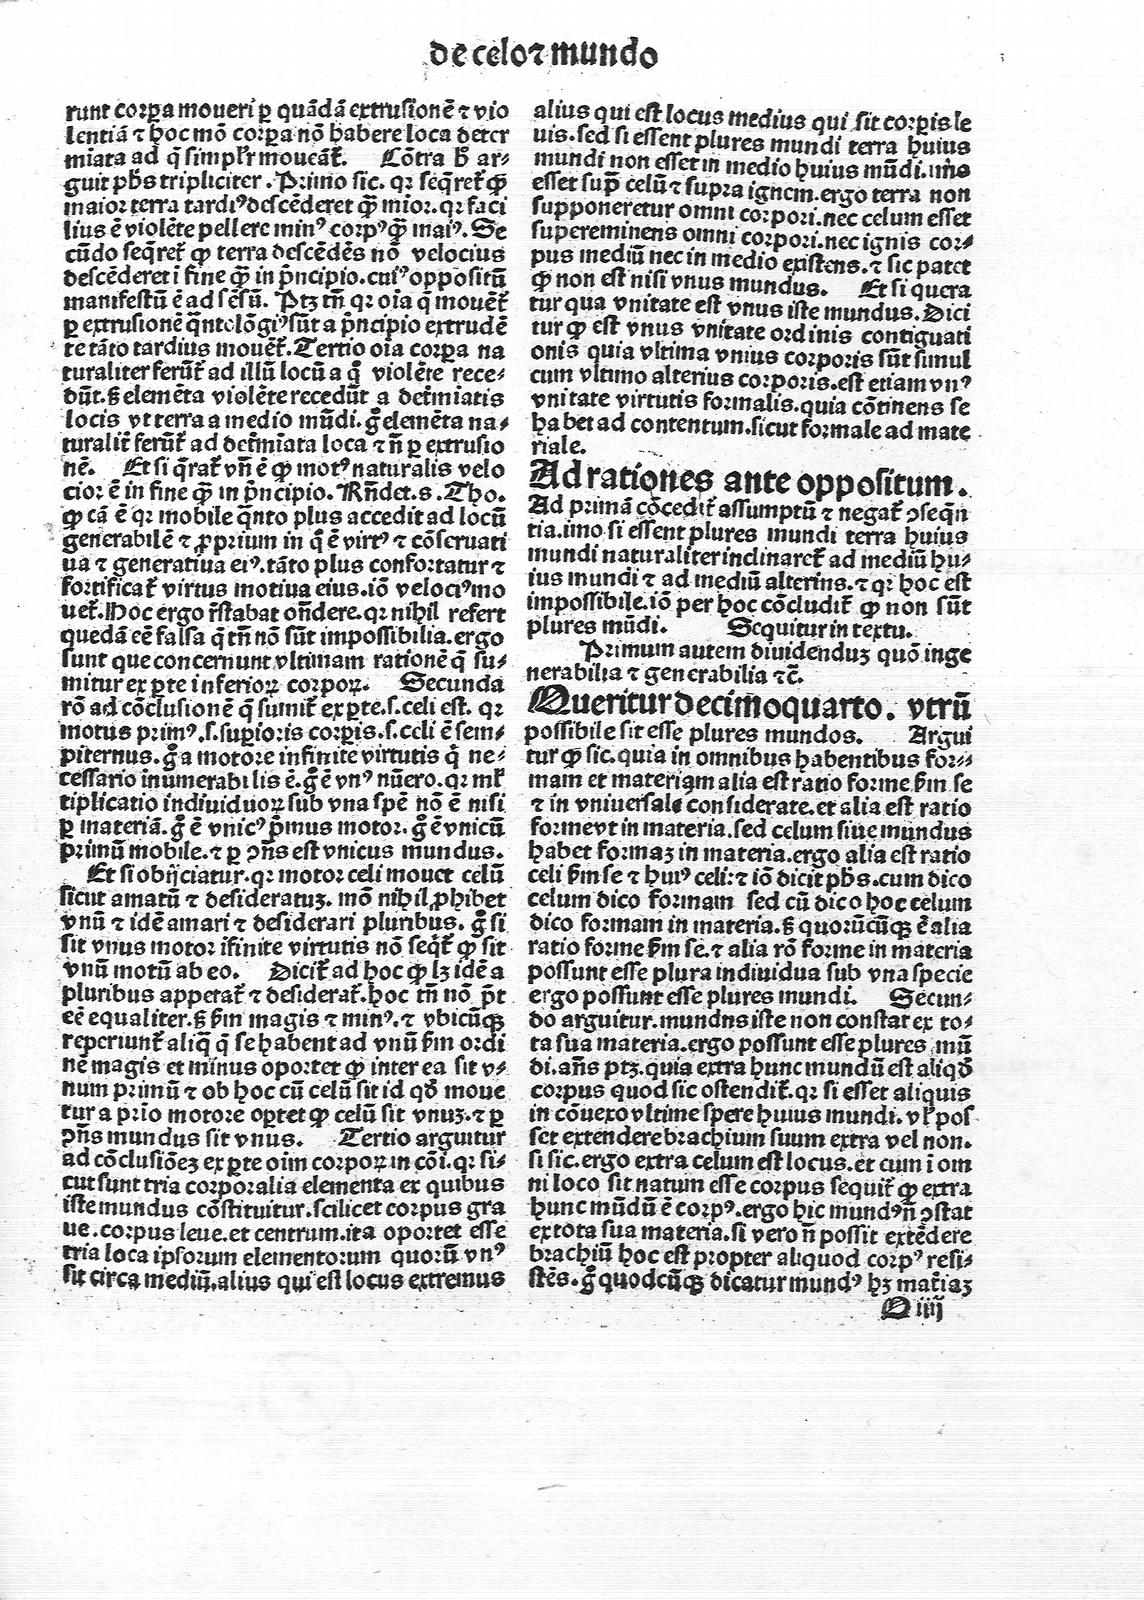 de celo ⁊ mundo
runt corꝑa moueri ꝑ quādā extrusionē ⁊ vio
lentiā ⁊ hoc mō corꝑa nō habere loca deter
mīata ad q̄ simplr̄ moueāt᷑. Cōtra ħ ar⸗
guit phs̄ tripliciter. Primo sic. qꝛ seq̄ret᷑ ꝙ
maior terra tardiꝰ descēderet q̄ꝫ mīor. qꝛ faci
lius ē violēte pellere minꝰ corpꝰ q̄ꝫ maiꝰ. Se
cūdo seq̄ret᷑ ꝙ terra descēdēs nō velocius
descēderet ī fine q̄ꝫ in p̄ncipio. cuiꝰ oppositū
manifestū ē ad sēsū. Ptꝫ tn̄ qꝛ oīa q̄ mouēt᷑
ꝑ extrusionē q̄nto lōgiꝰ sūt a p̄ncipio extrudē
te tāto tardius mouēt᷑. Tertio oīa corꝑa na
turaliter ferūt᷑ ad illū locū a q̄ violēte rece⸗
dūt. ꝫ elemēta violēte recedūt a det᷑miatis
locis vt terra a medio mūdi. g̊ elemēta na⸗
turalit᷑ ferūt᷑ ad det᷑mīata loca ⁊ n̄ ꝑ extrusio
nē. Et si q̄rat᷑ vn̄ ē ꝙ motꝰ naturalis velo
cior ē in fine q̄ꝫ in p̄ncipio. Rn̄det. s. Tho.
ꝙ cā ē qꝛ mobile q̄nto plus accedit ad locū
generabilē ⁊ ꝓprium in q̄ ē virtꝰ ⁊ cōseruati
ua ⁊ generatiua eiꝰ. tāto plus confortatur ⁊
fortificat᷑ virtus motiua eius. iō velociꝰ mo
uet᷑. Hoc ergo r̄stabat on̄dere. qꝛ nihil refert
quedā eē falsa q̄ tn̄ nō sūt impossibilia. ergo
sunt que concernunt vltimam rationē q̄ su⸗
mitur ex ꝑte inferioꝝ corpoꝝ. Secunda
rō ad cōclusionē q̄ sumit᷑ ex ꝑte. s. celi est. qꝛ
motus primꝰ. s. suꝑioris corꝑis. s. celi ē sem⸗
piternus. g̊ a motore infinite virtutis q̄ ne⸗
cessario inumerabilis ē. g̊ ē vnꝰ nūero. qꝛ ml̓
tiplicatio indiuiduoꝝ sub vna spē nō ē nisi
ꝑ materiā. g̊ ē vnicꝰ p̄mus motor. g̊ ē vnicū
primū mobile. ⁊ ꝑ ꝯn̄s est vnicus mundus.
Et si obijciatur. qꝛ motor celi mouet celū
sicut amatū ⁊ desideratuꝫ. mō nihil ꝓhibet
vnū ⁊ idē amari ⁊ desiderari pluribus. g̊ si
sit vnus motor īfinite virtutis nō seqt᷑ ꝙ sit
vnū motū ab eo. Dicit᷑ ad hoc ꝙ lꝫ idē a
pluribus apperat᷑ ⁊ desiderat᷑. hoc tn̄ nō p̄t
eē equaliter. ꝫ ẜm magis ⁊ minꝰ. ⁊ vbicūqꝫ
reperiunt᷑ aliq̄ q̄ se habent ad vnū ẜm ordi
nē magis et minus oportet ꝙ inter ea sit v⸗
num primū ⁊ ob hoc cū celū sit id qđ moue
tur a prīo motore oꝑtet ꝙ celū sit vnuꝫ. ⁊ ꝑ
ꝯn̄s mundus sit vnus. Tertio arguitur
ad cōclusiōeꝫ ex ꝑte oīm corpoꝝ in cōi. qꝛ si⸗
cut sunt tria corporalia elementa ex quibus
iste mundus cōstituitur. scilicet corpus gra
ue. corpus leue. et centrum. ita oportet esse
tria loca ipsorum elementorum quorū vnꝰ
sit circa mediū, alius qui est locus extremus
alius qui est locus medius qui sit corꝑis le
uis. sed si essent plures mundi terra huius
mundi non esset in medio huius mūdi. imo
esset suꝑ celū ⁊ supra ignem. ergo terra non
supponeretur omni corpori. nec celum esset
supereminens omni corpori. nec ignis cor⸗
pus mediū nec in medio existens. ⁊ sic patet
ꝙ non est nisi vnus mundus. Et si quera
tur qua vnitate est vnus iste mundus. Dici
tur ꝙ est vnus vnitate ordinis contiguati
onis quia vltima vnius corporis sūt simul
cum vltimo alterius corporis. est etiam vnꝰ
vnitate virtutis formalis. quia cōtinens se
habet ad contentum. sicut formale ad mate
riale.
Ad rationes ante oppositum.
Ad primā cōcedit᷑ assumptū ⁊ negat᷑ ꝯseq̄n
tia. imo si essent plures mundi terra huius
mundi naturaliter inclinaret᷑ ad mediū hu⸗
ius mundi ⁊ ad mediū alterius. ⁊ qꝛ hoc est
impossibile. iō per hoc cōcludit᷑ ꝙ non sūt
plures mūdi. Sequitur in textu.
Primum autem diuidenduꝫ quō inge
nerabilia ⁊ generabilia ⁊c̄.
Queritur decimoquarto. vtrū
possibile sit esse plures mundos. Argui
tur ꝙ sic. quia in omnibus habentibus for⸗
mam et materiam alia est ratio forme ẜm se
⁊ in vniuersale considerate. et alia est ratio
forme vt in materia. sed celum siue mundus
habet formaꝫ in materia. ergo alia est ratio
celi ẜm se ⁊ huiꝰ celi: ⁊ iō dicit phs̄. cum dico
celum dico formam sed cū dico hoc celum
dico formam in materia. ꝫ quorūcūqꝫ ē alia
ratio forme ẜm se. ⁊ alia rō forme in materia
possunt esse plura indiuidua sub vna specie
ergo possunt esse plures mundi. Secun⸗
do arguitur. mundns iste non constat ex to⸗
ta sua materia. ergo possunt esse plures mū
di. an̄s ptꝫ. quia extra hunc mundū est aliqđ
corpus quod sic ostendit᷑. qꝛ si esset aliquis
in cōuexo vltime spere huius mundi. vl̓ pos
set extendere brachium suum extra vel non.
si sic. ergo extra celum est locus. et cum ī om
ni loco sit natum esse corpus sequit᷑ ꝙ extra
hunc mūdū ē corpꝰ. ergo hic mundꝰ n̄ ꝯstat
ex tota sua materia. si vero n̄ possit extēdere
brachiū hoc est propter aliquod corpꝰ resi⸗
stēs. g̊ quodcūqꝫ dicatur mundꝰ hꝫ mat᷑iaꝫ
O iiij